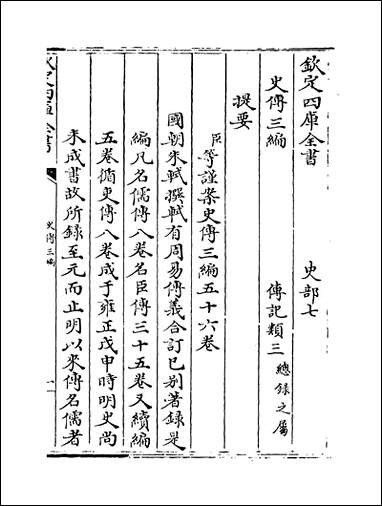 欽定四庫全書　史部七
史傳三編　傳記類三總錄之屬
提要
臣等謹案史傳三編五十六卷
國朝朱軾撰軾有周易傳義合訂已别著錄是
編凡名儒傳八卷名臣傳三十五卷又續編
五卷循吏傳八卷成于雍正戊申時明史尚
未成書故所錄至元而止明以來傳名儒者
欽定四庫全書
史傳三編
一